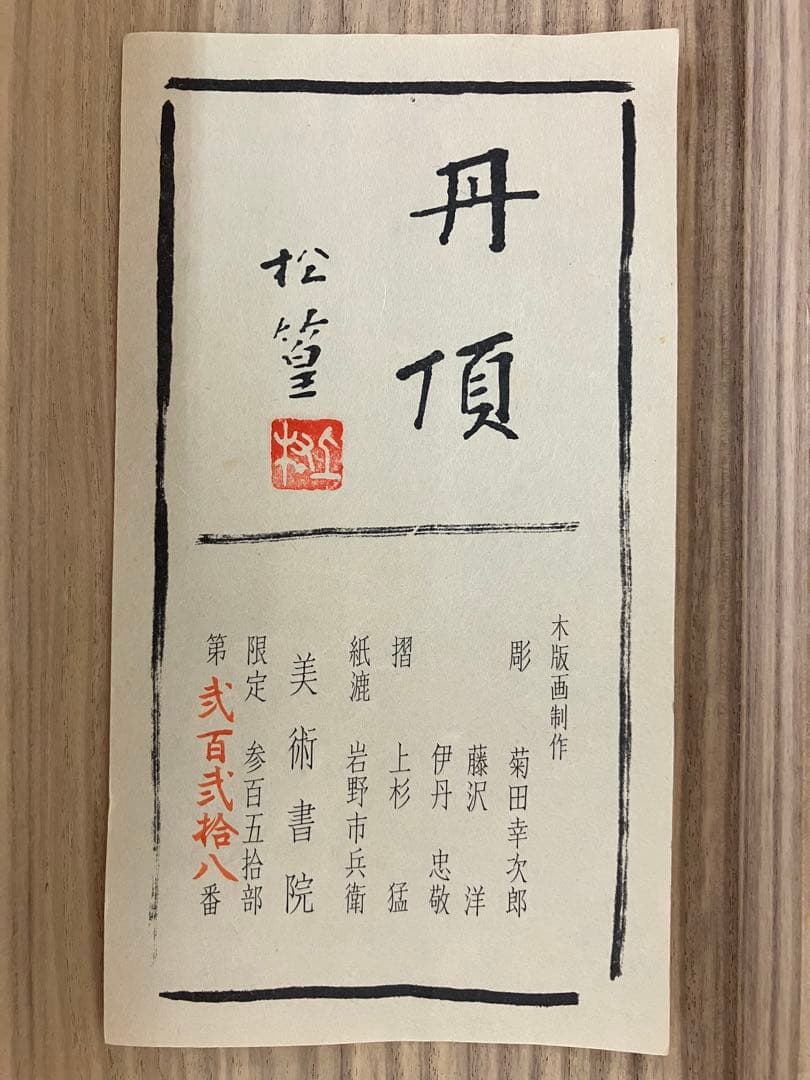 丹頂
松篁
上松
木版画制作
彫 菊田幸次郎
藤沢 洋
伊丹 忠敬
摺 上杉 猛
紙漉 岩野市兵衛
美術書院
限定 参百五拾部
第弐百弐拾八番